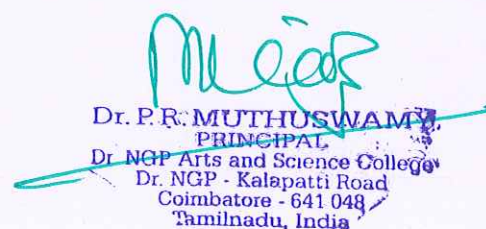 Dr. P.R. MUTHUSWAMY,
PRINCIPAL
Dr. NGP Arts and Science College
Dr. NGP - Kalapatti Road
Coimbatore - 641 048
Tamilnadu, India